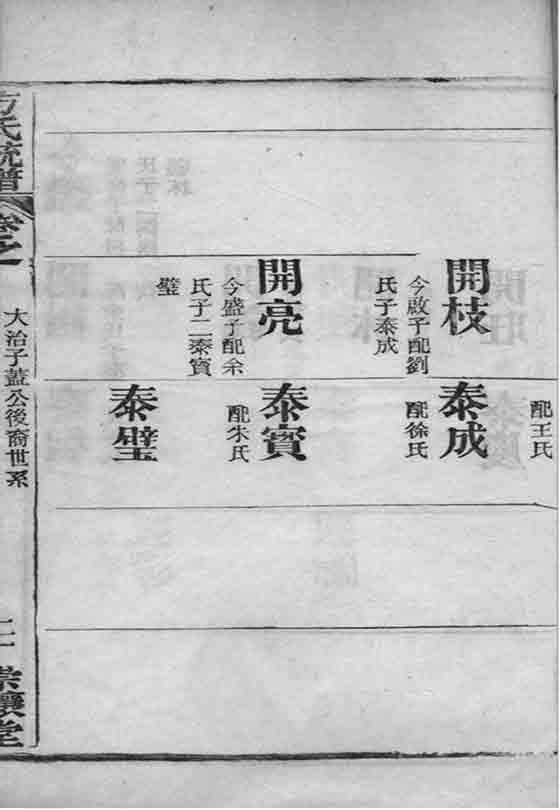 配王氏
開枝
今啟子配劉
氏子泰成
泰成
配徐氏
開亮
今盛子配余
氏子二泰寶
璧
泰寶
配朱氏
泰璧
方氏統譜
卷之
大治子蓋公後裔世系
堂